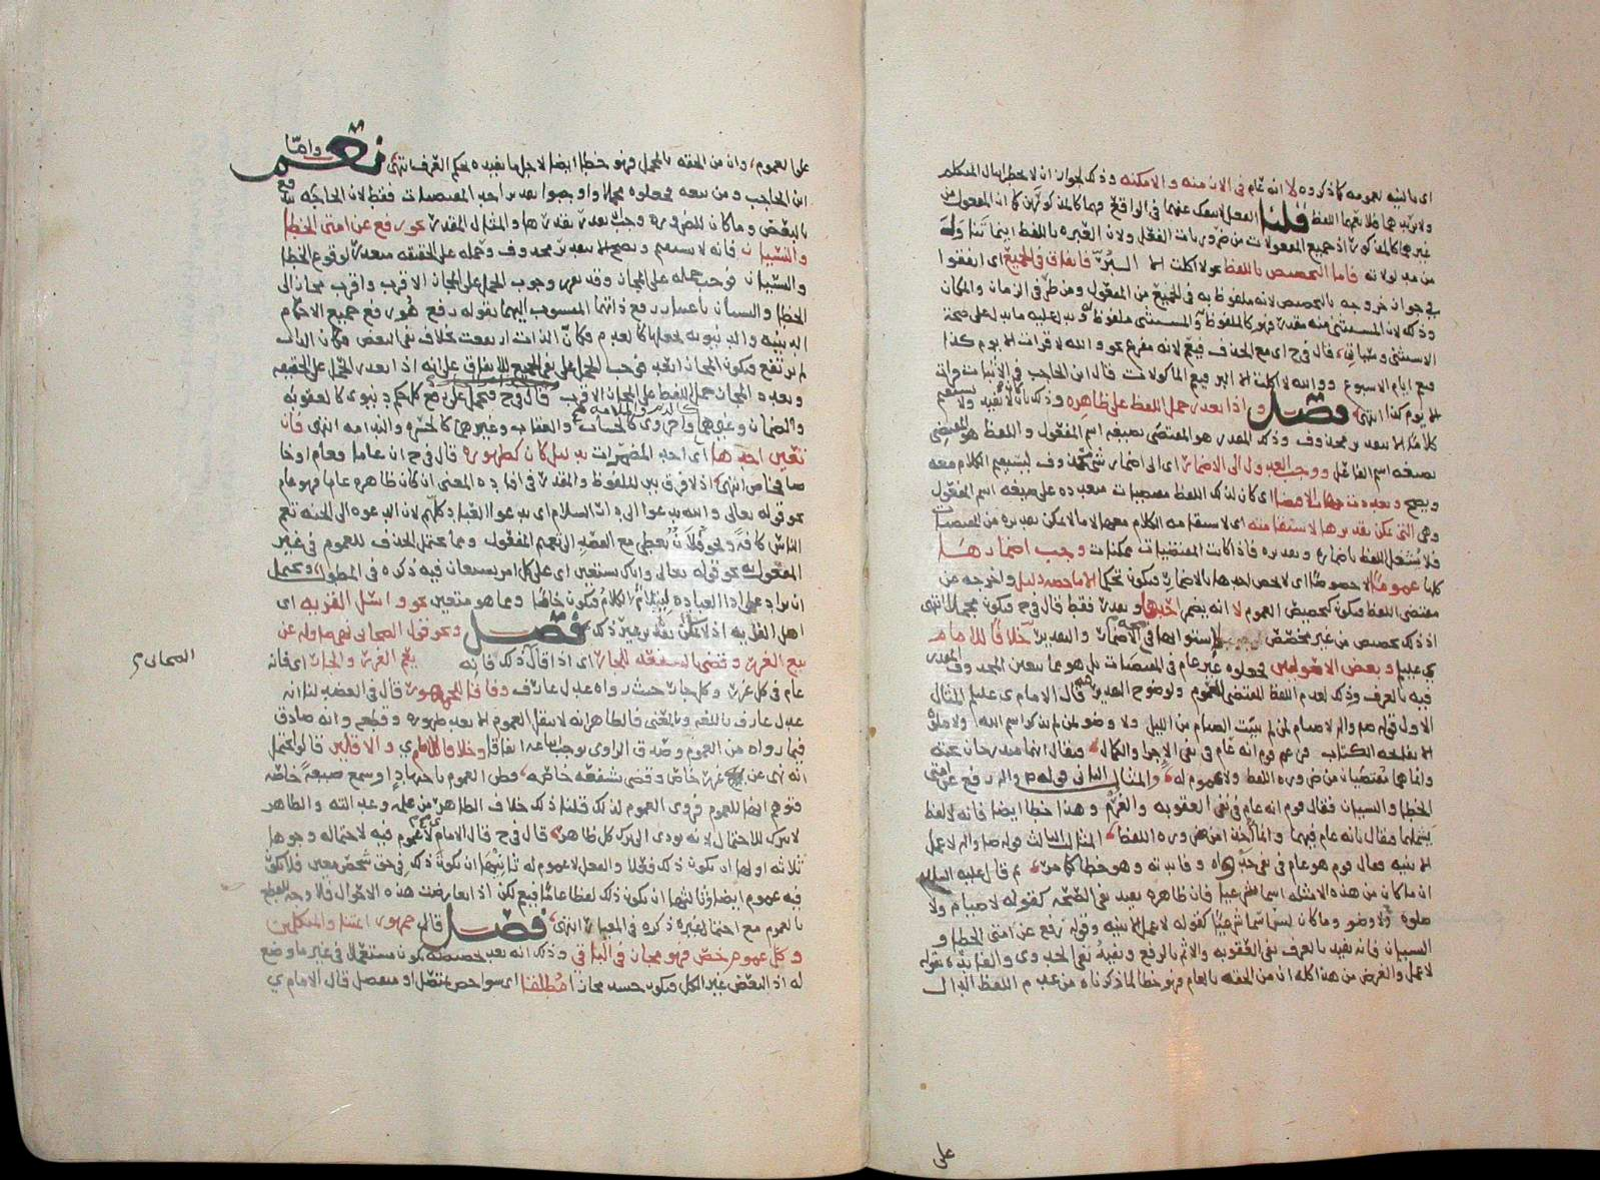 اى بالنيه بعمومه كما ذكروه لا انه عام فى الازمنه والامكنه وذلك لجواز ان لا يخطرا ببال المتكلم
ولا يريد بهما فلا يعمهما اللفظ قلنا الفعل لا ينفك عنهما فى الواقع فهما كالمذكورين كما ان المفعول من
غير هما كالمذكور اذ جميع المفعولات من ضروريات الفعل ولان العبره باللفظ اينما تناوله
من مدلولاته فاما التخصيص باللفظ نحو لا اكلت الا البر فاتفاق فى الجميع اى اتفقوا
فى جواز خروجه بالتخصيص لانه ملفوظ به فى الجميع من المفعول ومن ظرفى الزمان والمكان
وذلك لان المستثنى منه مقدر فهو كالملفوظ والمستثنى ملفوظ به يدل عليه ما يدل على صحة
الاستثنى وسياتى قال فى ح اى مع الحذف فيعم لانه مفرغ نحو والله لا قرات الا يوم كذا
فيعم ايام الاسبوع ووالله لا اكلت الا البر فيعم الماكولات قال ابن الحاجب فى الاثبات قرات
الا يوم كذا انتهى فصل واذا تعذر حمل اللفظ على ظاهره وذلك بان لا يفيد ولا يستقيم
كلاما الا بتقدير محذوف وذلك المقدر هو المقتضى بصيغه اسم المفعول واللفظ هو المقتضى
بصيغه اسم الفاعل ووجب العدول الى الاضمار اى الى اضمار شئ محذوف ليستقيم الكلام معه
ويصح وتعددت جهات الاقتضا اى كان لذلك اللفظ مقتضيات متعدده على صيغه اسم المفعول
وهى التى يمكن تقديرها لاستقامته اى لاستقامه الكلام معها لا ما لا يمكن تقديره من المقتضيات
فلا يشتغل اللفظ باضماره وتقديره فاذا كانت المقتضيات ممكنات وجب اضمارها
كلها عموما لا خصوصا اى لا يخص احدها بالاضمار فيكون تحكما الا ما خصه دليل واخرجه من
مقتضى اللفظ فيكون كتخصيص العموم لا انه يضمر احدها ويقدر فقط قال فى ح فيكون مجملا انتهى
اذ ذلك تخصيص من غير مخصص لاستوائها فى الاضمار والتقدير خلافا للامام
ى عليلم وبعض الاصوليين فجعلوه غير عام فى المقتضيات بل هو مما يتعين المحذوف المقدر
فيه بالعرف وذلك لعدم اللفظ المقتضى للعموم ولوضوح المقدر قال الامام ى عليلم المثال
الاول قوله صم والم لا صيام لمن لم يبيت الصيام من الليل ولا وضوء لمن لم يذكر اسم الله ولا صلوه
الا بفاتحة الكتاب فزعم قوم انه عام فى نفى الاجزا والكمال
وانما هما مقتضيان من ضروره اللفظ ولا عموم له والمثال الثانى قوله صم والم رفع عن امتى
الخطا والنسيان فقال قوم انه عام فى نفى العقوبه والغرم وهذا خطا ايضا فانه لا لفظ
يشملهما فيقال بانه عام فيهما من ضروره اللفظ المثال الثالث قوله صم والم لا عمل
الا بنيه فقال قوم هو عام فى نفى جدواه وفايدته وهو خطا كما مر ثم قال عليه السلام
ان ما كان من هذه الامثله اسما شرعيا فان ظاهره يفيد نفى الصحه كقوله لا صيام ولا
صلوه ولا وضو وما كان ليس اسما شرعيا كقوله لا عمل الا بنيه وقوله رفع عن امتى الخطا و
النسيان فانه يفيد بالعرف نفى العقوبه والاثم بالرفع ويفيد نفى الجدوى والفايده بقوله
لا عمل والغرض من هذا كله ان من الحقه بالعام فهو خطا لما ذكرناه من عدم اللفظ الدال
على
على العموم وان من الحقه بالمجمل فهو خطا ايضا لاجل ما يفيده بحكم العرف انتهى نعم واما
ابن الحاجب ومن تبعه فجعلوه مجملا واوجبوا تقدير احد المقتضيات فقط لان الحاجه تندفع
بالبعض وما كان للضروره وجب تقديره بقدرها والمثال المقدر نحو رفع عن امتى الخطا
والنسيان فانه لا يستقيم ويصح الا بتقدير محذوف وحمله على الحقيقه متعذر لوقوع الخطا
والنسيان فوجب حمله على المجاز وقد تقرر وجوب الحمل على المجاز الاقرب واقرب مجاز الى
الخطا والنسيان باعتبار رفع ذاتهما المنسوب اليهما بقوله رفع هو رفع جميع الاحكام
الدينيه والدنيويه يجعلها كالعدم فكان الذات ارتفعت بخلاف نفى البعض فكان الذات
لم ترتفع فيكون المجاز ابعد فوجب الحمل على نفى الجميع للاتفاق على انه اذا تعذر الحمل على الحقيقه
وتعدد المجاز حمل اللفظ على المجاز الاقرب قال فى ح فيحمل على رفع كل حكم دنيوى كالعقوبه
والضمان وغيرهما واخروى كالحساب والعقاب وغيرهما كالحسره والندامه انتهى فان
تعين احدها اى احد المضمرات بدليل كان كظهوره قال فى ح ان عاما فعام او خا
صا فخاص انتهى اذ لا فرق بين الملفوظ والمقدر فى افاده المعنى ان كان ظاهره عاما فهو عام
نحو قوله تعالى والله يدعوا الى دار السلام اى يدعوا العباد كلهم لان الدعوه الى الجنه تعم
الناس كافة ونحو فلان يعطى مع القصد الى تعميم المفعول ومما يحتمل الحذف للعموم فى غير
المفعول به نحو قوله تعالى واياك نستعين اى على كل امر يستعان فيه ذكره فى المطول ويحتمل
ان يراد على اداء العباده ليتلائم الكلام فيكون خاصا ومما هو متعين نحو واسئل القريه اى
اهل القريه اذ لا يمكن تقدير غير ذلك فصل ونحو قول الصحابى نهى صلى عن
بيع الغرر وقضى بالشفعه للجار اى اذا قال ذلك فانه يعم الغرر والجار اى فانه
عام فى كل غرر وكل جار حيث رواه عدل عارف وفاقا للجمهور قال فى العضد لنا انه
عدل عارف باللغه وبالمعنى فالظاهر انه لا ينقل العموم الا بعد ظهوره وقطعه وانه صادق
فيما رواه من العموم وصدق الراوى يوجب اتباعه اتفاقا وخلافا للامام ي والاقلين قالوا يحتمل
انه نهى عن غرر خاص وقضى بشفعه خاصه فظن العموم باجتهاد او سمع صيغة خاصه
فتوهم انها للعموم فروى العموم لذلك قلنا ذلك خلاف الظاهر من علمه وعدالته والظاهر
لا يترك للاحتمال لانه يودى الى ترك كل ظاهر قال فى ح قال الامام لا عموم فيه لاحتماله وجوها
ثلاثه اولها ان يكون ذلك فعلا والفعل لا عموم له ثانيها ان يكون ذلك فى حق شخص معين فلا يكون
فيه عموم ايضا وثالثها ان يكون ذلك لفظا عاما فيعم لكن اذا تعارضت هذه الاحوال فلا وجه للقطع
بالعموم مع احتمال غيره ذكره فى المعيار انتهى فصل قال جمهور ائمتنا والمتكلمين
وكل عموم خص فهو مجاز فى الباقى وذلك انه بعد تخصيصه يكون مستعمل فى غير ما وضع
له اذ البعض غير الكل فيكون حينئذ مجازا مطلقا اى سوا خص بمتصل او منفصل قال الامام ي
الصحابى